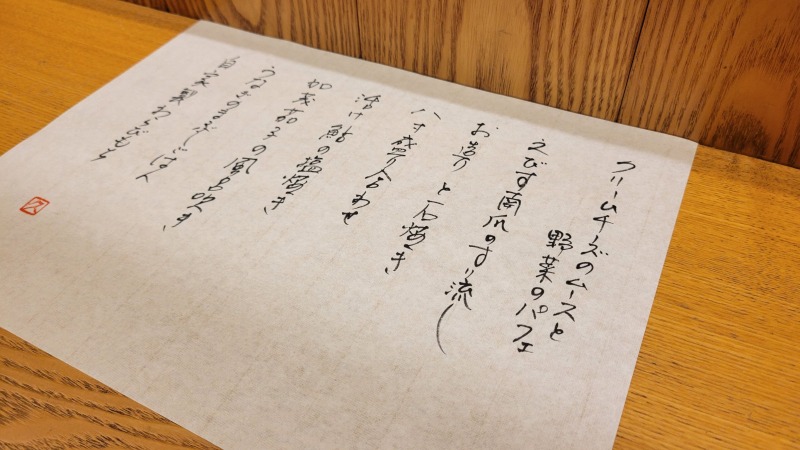 クリームチーズのムースと
野菜のパフェ
えびす南瓜のすり流し
お造りと石焼き
八寸盛り合わせ
活け鮎の塩焼き
加茂茄子の風呂吹き
うなぎのまぶしごはん
自家製わらびもち
久